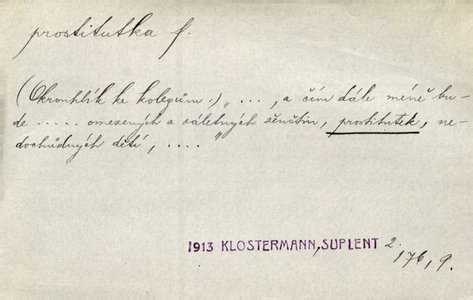 prostitutka f.
(Okrouhlík ke kolegům:) „ ..., a čím dále méně bu-
de ..... omezených a záletných ženštin, prostitutek, ne-
dochůdných dětí, ...."
1913 KLOSTERMANN, SUPLENT 2.
176, 9.